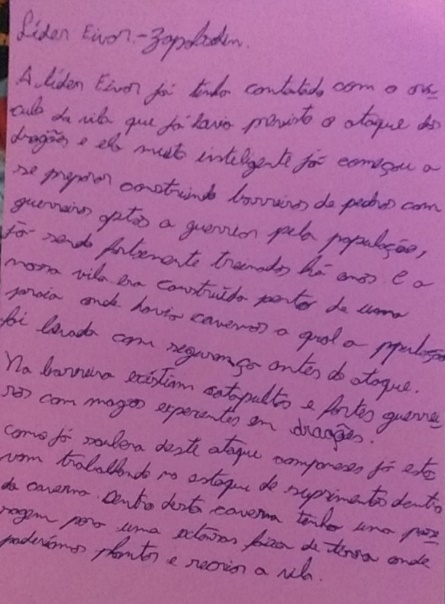 Líder Eivor - Zapolndin.
A líder Eivor já tenho contatado com o orá-
culo da vila que já havia previsto o ataque dos
dragões e ela muito inteligente já começou a
se preparar construindo barreiras de pedras com
guerreiros aptos a guerrear pela população,
já sendo fortemente treinados há anos e a
nossa vila era construída perto de uma
praia onde havia cavernas a qual a população
foi levada com segurança antes do ataque.
Na barreira existiam catapultas e fortes guerrei
ros com magos experientes em dragões.
como já soubera deste ataque camponeses já esta
vam trabalhando no estoque de suprimentos dentro
da caverna. Dentro desta caverna tenho uma pas-
sagem para uma extensa faixa de terra onde
poderíamos plantar e recriar a vila.